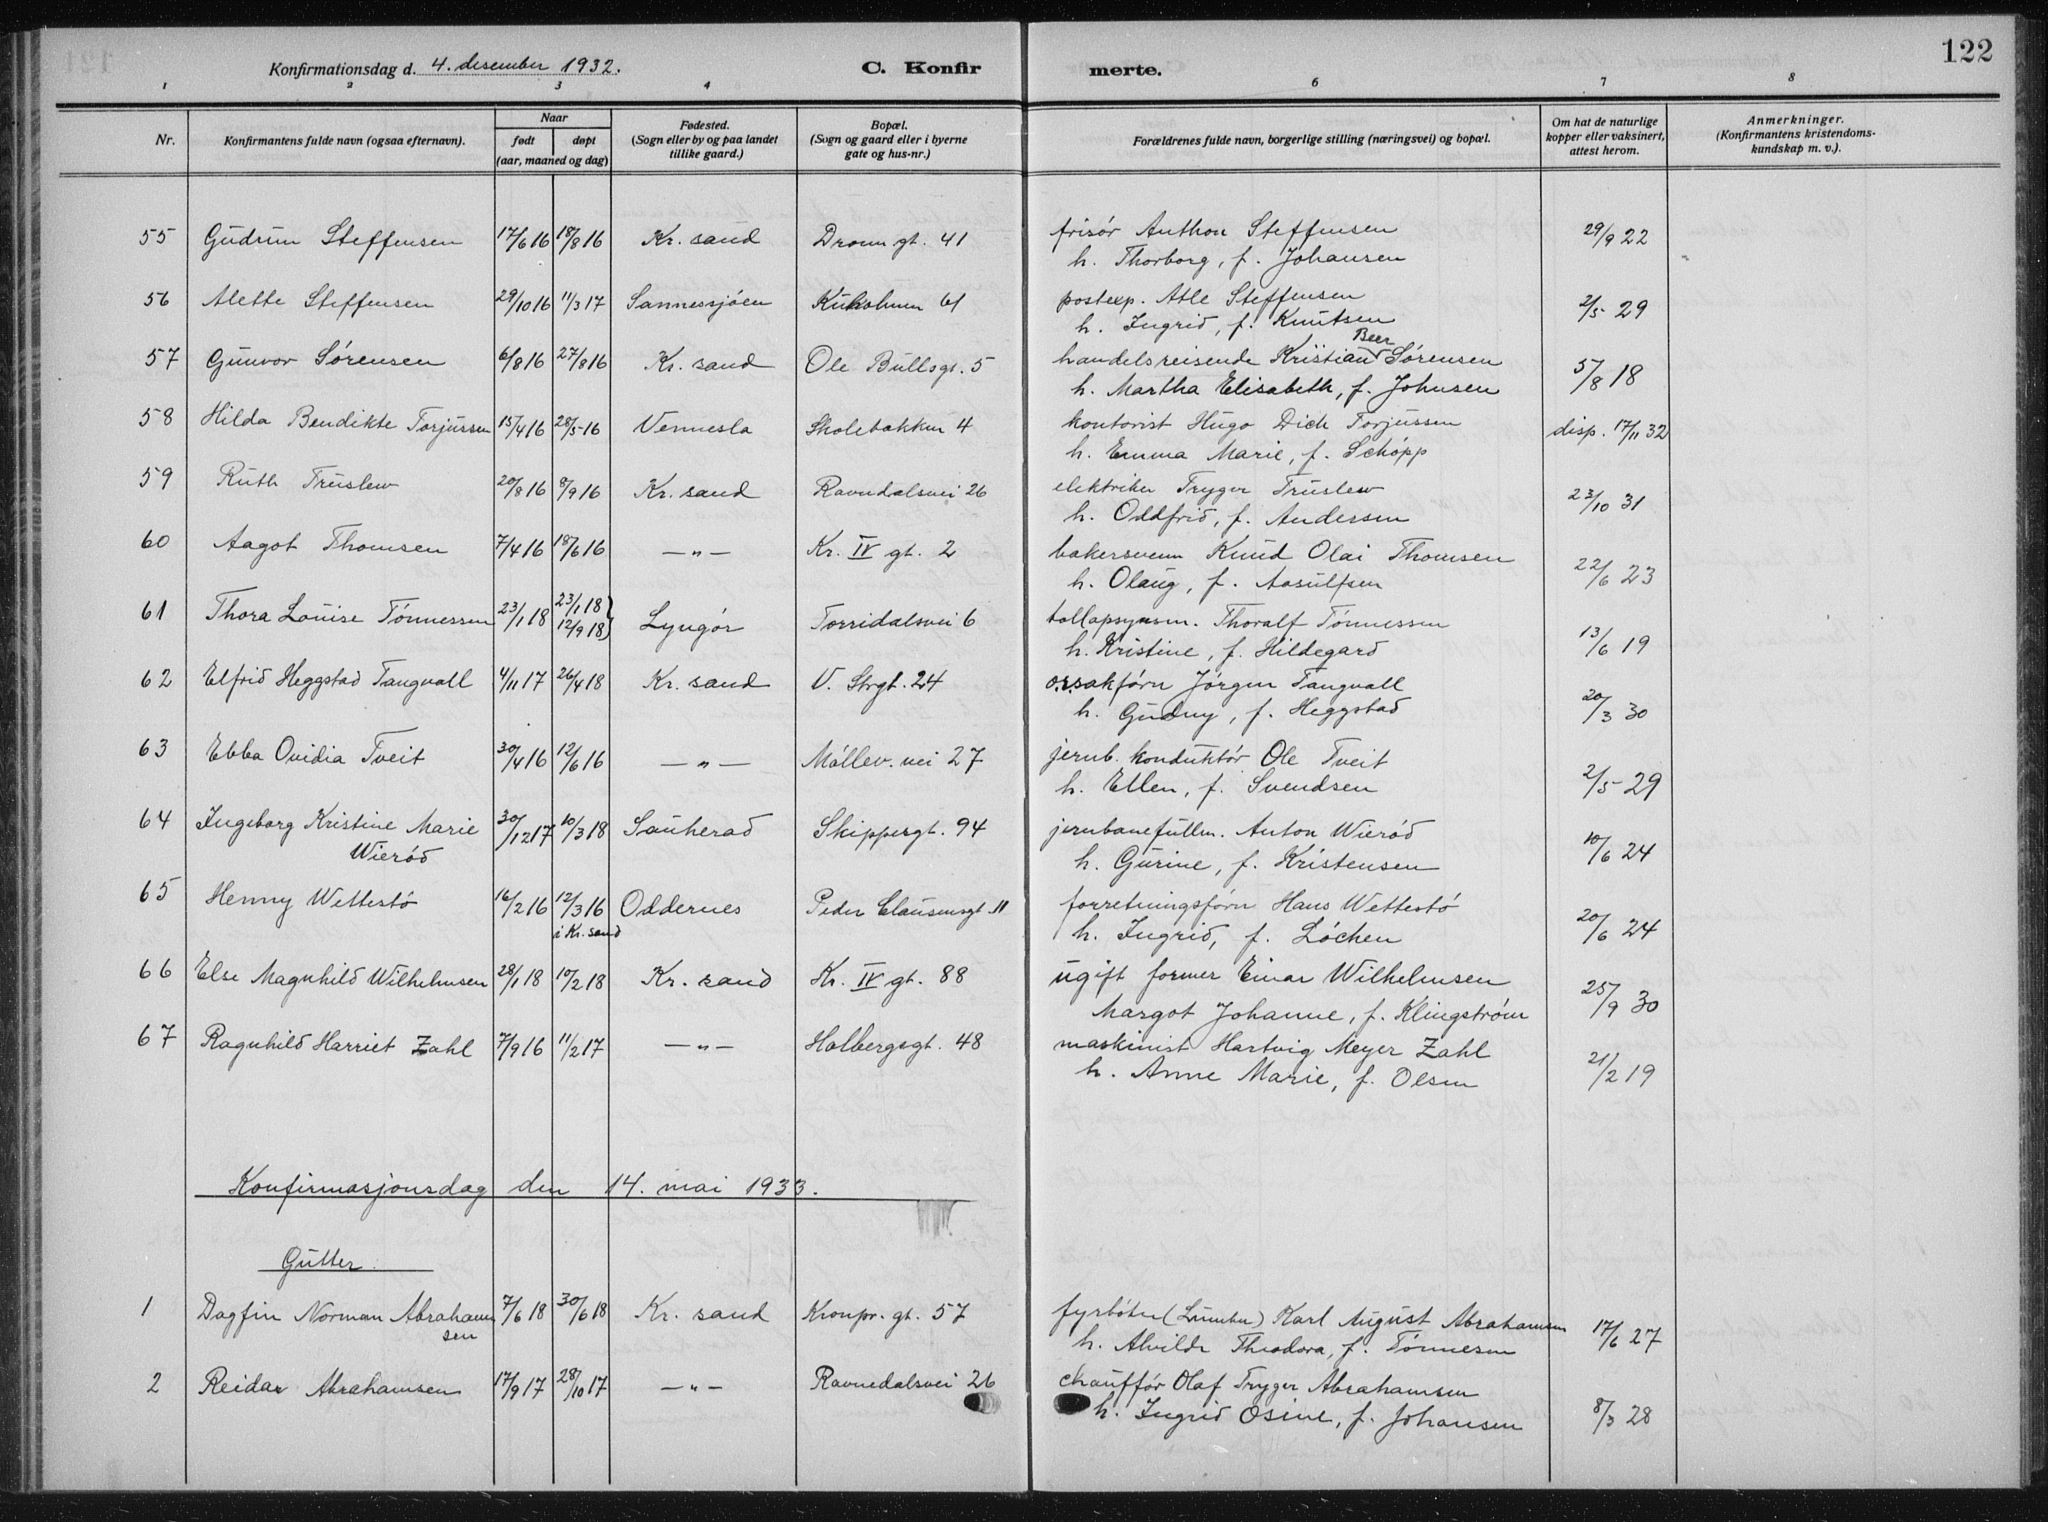 122
Konfirmationsdag d. 4. desember 1932. C. Konfirmerte.
1 2 3 4 5 6 7 8
Nr. Konfirmantens fulde navn (ogsaa efternavn). Naar født døpt (aar, maaned og dag) Fødested. (Sogn eller by og paa landet tillike gaard.) Bopæl. (Sogn og gaard eller i byerne gate og hus-nr.) Forældrenes fulde navn, borgerlige stilling (næringsvei) og bopæl. Om hat de naturlige kopper eller vaksinert, attest herom. Anmerkninger. (Konfirmantens kristendomskundskap m. v.).
55 Gudrun Steffensen 17/6 16 18/8 16 Kr. sand Dronn gt. 41 frisör Anthon Steffensen 29/9 22
h. Thorborg, f. Johansen
56 Alette Steffensen 29/10 16 11/3 17 Sannessjöen Kuholmen 61 postexp. Atle Steffensen 2/5 29
h. Ingrid, f. Knutsen
57 Gunvor Sörensen 6/8 16 27/8 16 Kr. sand Ole Bullsgt. 5 handelsreisende Kristian Beer Sörensen 5/8 18
h. Martha Elisabeth, f. Johnsen
58 Hilda Bendikte Torjussen 15/4 16 28/5 16 Vennesla Skolebakken 4 kontorist Hugo Dick Torjussen disp. 17/11 32
h. Emma Marie, f. Schöpp
59 Ruth Truslew 20/8 16 8/9 16 Kr. sand Ravndalsvei 26 elektriker Trygve Truslew 23/10 31
h. Oddfrid, f. Andersen
60 Aagot Thomsen 7/4 16 18/6 16 — „ — Kr. IV gt. 2 bakersvenn Knud Olai Thomsen 22/6 23
h. Olaug, f. Aasulfsen
61 Thora Louise Tönnessen 23/1 18 23/1 18 12/9 18 Lyngör Torridalsvei 6 tollopsynsm. Thoralf Tönnessen 13/6 19
h. Kristine, f. Hildegard
62 Elfrid Heggstad Tangvall 4/11 17 26/4 18 Kr. sand V. Strgt. 24 o.r.sakförer Jörgen Tangvall 20/3 30
h. Gudny, f. Heggstad
63 Ebba Ovidia Tveit 30/4 16 12/6 16 — „ — Möllev. vei 27 jernb. konduktör Ole Tveit 2/5 29
h. Ellen, f. Svendsen
64 Ingeborg Kristine Marie 30/12 17 10/3 18 Sauherad Skippergt. 94 jernbanefullm. Anton Wieröd 10/6 24
Wieröd h. Gurine, f. Kristensen
65 Henny Wettestö 16/2 16 12/3 16 Oddernes Peder Clausensgt. 11 forretningsförer Hans Wettestö 20/6 24
i Kr. sand h. Ingrid, f. Löchen
66 Else Magnhild Wilhelmsen 28/1 18 10/2 18 Kr. sand Kr. IV gt. 88 ugift former Einar Wilhelmsen 25/9 30
Margot Johanne, f. Klingström
67 Ragnhild Harriet Zahl 7/9 16 11/2 17 — „ — Holbergsgt. 48 maskinist Hartvig Meyer Zahl 21/2 19
h. Anne Marie, f. Olsen
Konfirmasjonsdag den 14. mai 1933.
Gutter.
1 Dagfin Norman Abraham 7/6 18 30/6 18 Kr. sand Kronpr. gt. 57 fyrböter Karl August Abrahamsen 17/6 27
sen h. Alvilde Theodora, f. Tönnesen
2 Reidar Abrahamsen 17/9 17 28/10 17 — „ — Ravnedalsvei 26 chaufför Olaf Trygve Abrahamsen 8/3 28
h. Ingrid Osine, f. Johansen